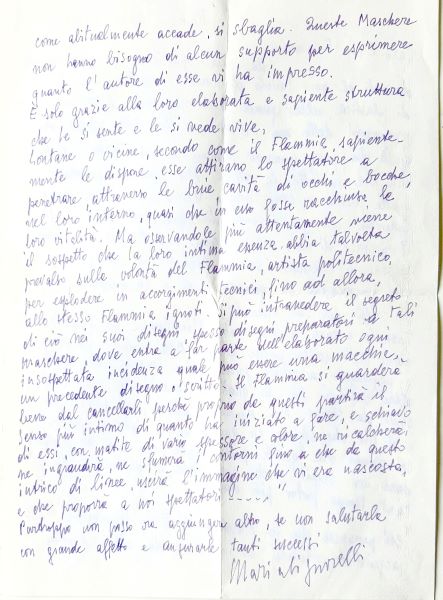 come abitualmente accade, si sbaglia. Queste Maschere
non hanno bisogno di alcun supporto per esprimere
quanto l'autore di esse vi ha impresso.
È solo grazie alla loro elaborata e sapiente struttura
che le si sente e le si vede vive,
Lontane o vicine, secondo come il Flammia, sapiente-
mente le dispone, esse attirano lo spettatore a
penetrare, attraverso le buie cavità di occhi e bocche,
nel loro interno, quasi che in esso fosse racchiusa la
loro vitalità. Ma osservandole più attentamente viene
il sospetto che la loro intima essenza abbia talvolta
prevalso sulla volontà del Flammia, artista politecnico,
per esplodere in accorgimenti tecnici, fino ad allora,
allo stesso Flammia ignoti. Si può intravedere il segreto
di ciò nei suoi disegni spesso disegni preparatori a tali
maschere, dove entra a far parte dell'elaborato ogni
insospettata incidenza quale può essere una macchia,
un precedente disegno o scritto. Il Flammia si guarderà
bene dal cancellarli perché proprio da questi partirà il
senso più intimo di quanto ha iniziato a fare, e schiavo
di essi, con matite di vario spessore e colore, ne ricalcherà
ne ingrandirà, ne sfumerà i contorni fino a che da questo
intrico di linee, uscirà l'immagine che vi era nascosta,
e che proporrà a noi spettatori ----- "
Purtroppo non posso ora aggiungere altro, se non salutarla
con grande affetto e augurarle tanti successi